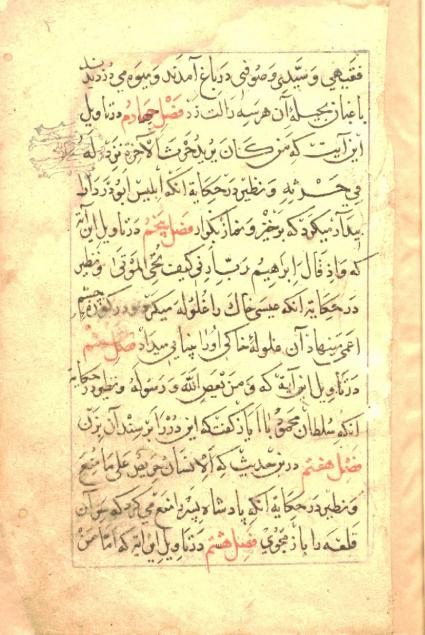 فقیهی و سیدی و صوفی در باغ آمدند و میوه می دزدیدند
باغبان بحیله آن هر سه را لت زد فصل چهارم در تاویل
این آیت که من کان یرید حرث الآخرة نزد له
فی حرثه و نظیر در حکایة انکه ابلیس ابو دردا را
بیدار میکرد که برخیز و نماز بگزار فصل پنجم در تاویل این آیة
که و اذ قال ابراهیم رب ارنی کیف تحی الموتی و نظیر
در حکایة انکه عیسی خاک را غلوله میکرد و در کوزه چشم
اعمی مینهاد آن غلولۀ خاکی او را بینایی میداد فصل ششم
در تاویل این آیة که و من یعص الله و رسوله و نظیر در حکایة
انکه سلطان محمود با ایاز گفت که این در را بر سندان بزن
فصل هفتم در بر حدیث که الانسان حریص علی ما منع
و نظیر در حکایة انکه پادشاه پسر را منع می کرد که سر آن
قلعه را باز مجوی فصل هشتم در تاویل این آیة که اما من